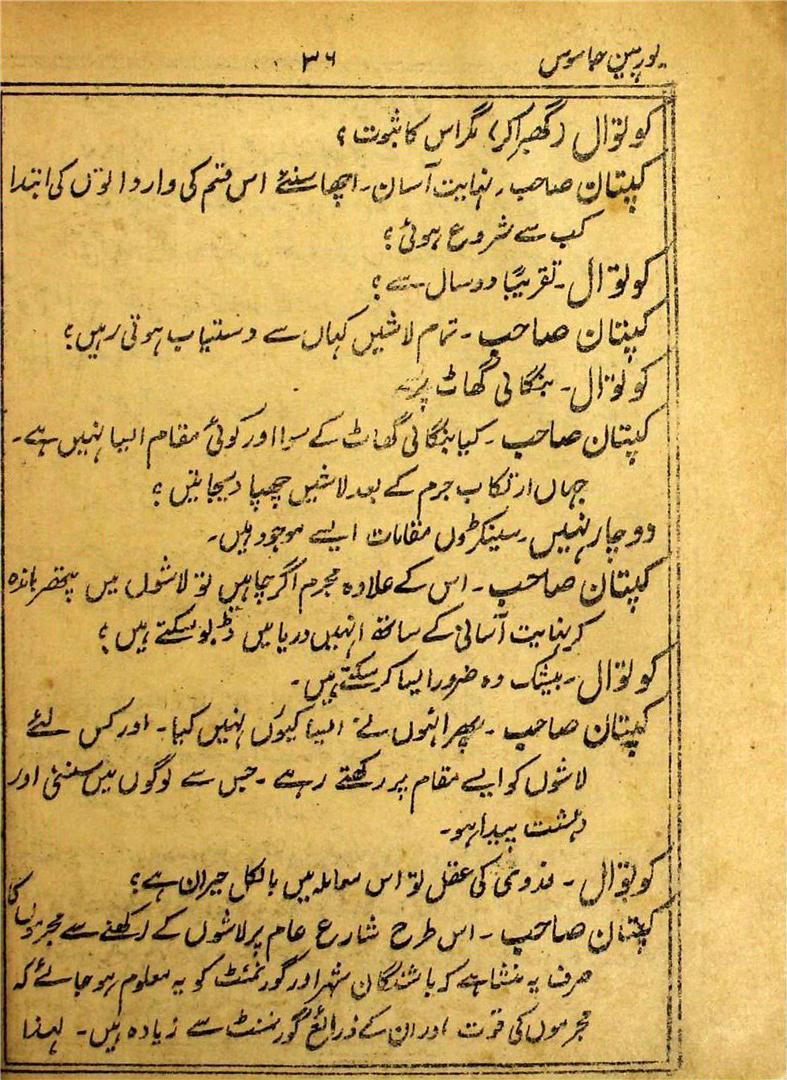 یورپین جاسوس ۳۶
کوتوال (گھبراکر) مگر اس کا ثبوت ؟
کپتان صاحب۔ نہایت آسان۔ اچھا سنئے اس قسم کی وارداتوں کی ابتدا
کب سے شروع ہوئی ؟
کوتوال۔ تقریباً دو سال سے ؟
کپتان صاحب۔ تمام لاشیں کہاں سے دستیاب ہوتی رہیں ؟
کوتوال۔ بنگالی گھاٹ پر سے
کپتان صاحب۔ کیا بنگالی گھاٹ کے سوا اور کوئی مقام ایسا نہیں ہے۔
جہاں ارتکاب جرم کے بعد لاشیں چھپا دیجائیں ؟
دو چار نہیں۔ سینکڑوں مقامات ایسے موجود ہیں۔
کپتان صاحب۔ اس کے علاوہ مجرم اگر چاہیں تو لاشوں میں پتھر باندھ
کر نہایت آسانی کے ساتھ انہیں دریا میں ڈبو سکتے ہیں ؟
کوتوال۔ بیشک وہ ضرور ایسا کر سکتے ہیں۔
کپتان صاحب۔ پھر انہوں نے ایسا کیوں نہیں کیا۔ اور کس لئے
لاشوں کو ایسے مقام پر رکھتے رہے۔ جس سے لوگوں میں سنسنی اور
دہشت پیدا ہو۔
کوتوال۔ فدوی کی عقل تو اس معاملہ میں بالکل حیران ہے ؟
کپتان صاحب۔ اس طرح شارع عام پر لاشوں کے رکھنے سے مجرموں کا
صرف یہ منشا ہے کہ باشندگان شہر اور گورنمنٹ کو یہ معلوم ہو جائے کہ
مجرموں کی قوت اور ان کے ذرائع گورنمنٹ سے زیادہ ہیں۔ لہذا